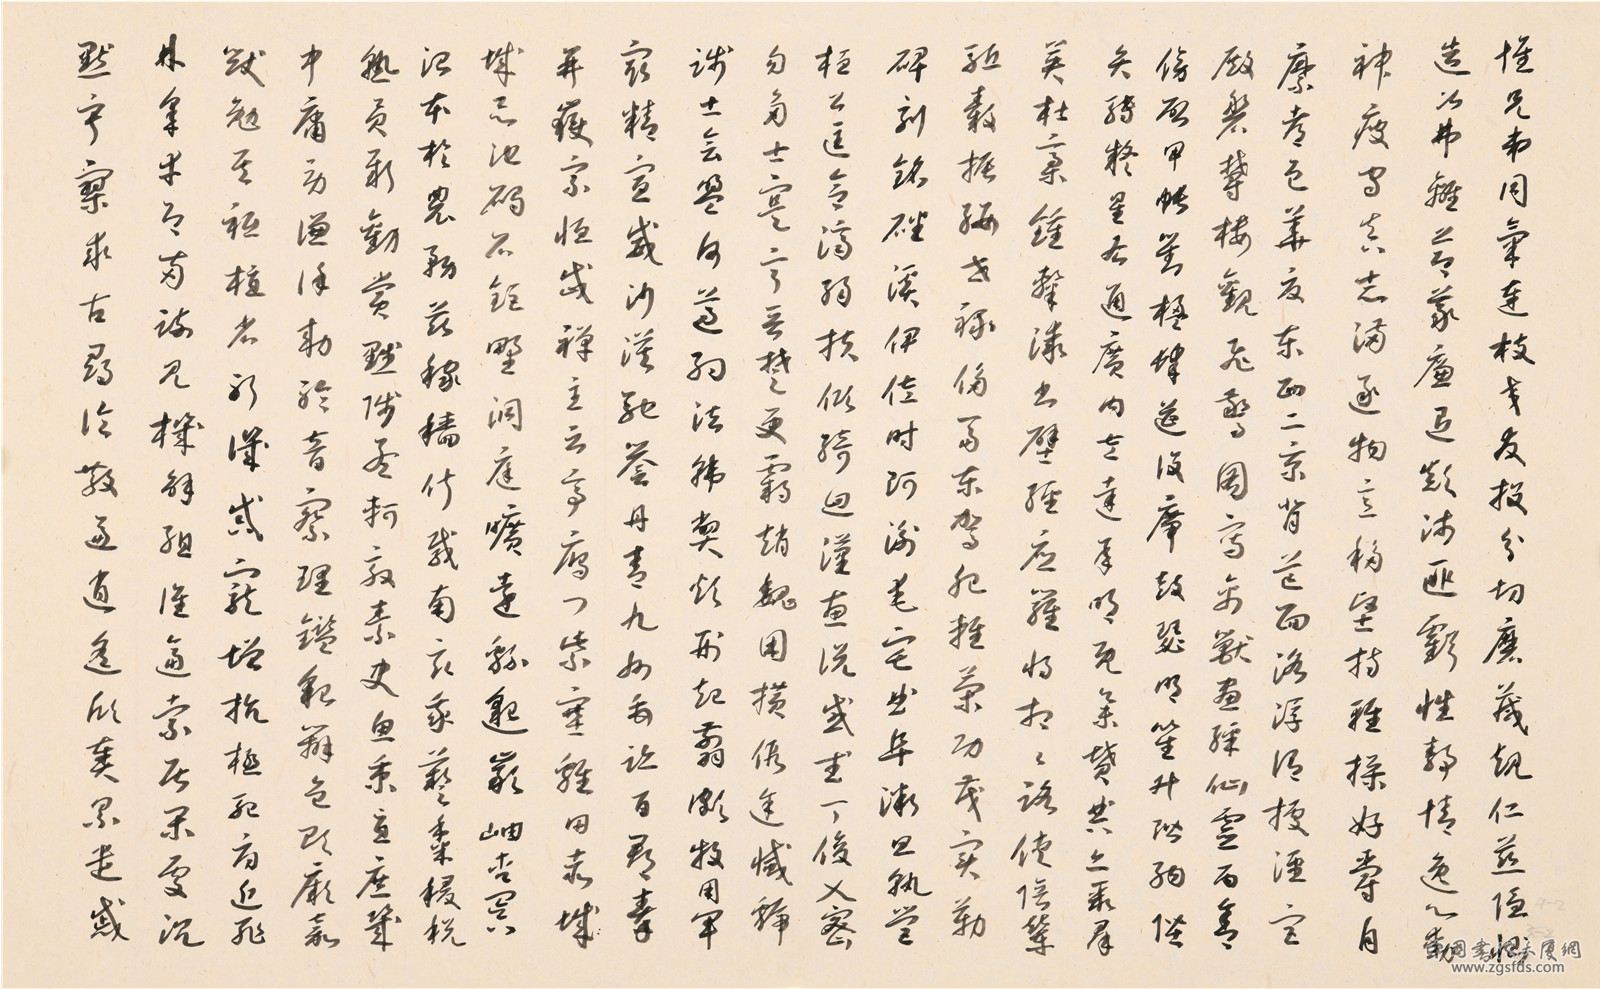 懷兄弟同氣連枝交友投分切磨箴規仁慈隱惻
造次弗離節義廉退顛沛匪虧性靜情逸心動
神疲守真志滿逐物意移堅持雅操好爵自
縻都邑華夏東西二京背邙面洛浮渭據涇宮
殿盤鬱樓觀飛驚圖寫禽獸畫綵仙靈丙舍
傍啟甲帳對楹肆筵設席鼓瑟吹笙升階納陛
弁轉疑星右通廣內左達承明既集墳典亦聚群
英杜稾鍾隸漆書壁經府羅將相路俠陪輦
驅轂振纓世祿侈富車駕肥輕策功茂實勒
碑刻銘磻溪伊佐時阿衡奄宅曲阜微旦孰營
桓公匡合濟弱扶傾綺迴漢惠說感武丁俊乂密
勿多士寔寧晉楚更霸趙魏困橫假途滅虢
踐土會盟何遵約法韓弊煩刑起翦頗牧用軍
最精宣威沙漠馳譽丹青九州禹跡百郡秦
并嶽宗恒岱禪主云亭雁門紫塞雞田赤城
城昆池碣石鉅野洞庭曠遠綿邈巖岫杳冥
治本於農務茲稼穡俶載南畝我藝黍稷稅
熟貢新勸賞黜陟孟軻敦素史魚秉直庶幾
中庸勞謙謹敕聆音察理鑑貌辨色貽厥嘉
猷勉其祗植省躬譏誡寵增抗極殆辱近恥
林皋幸即兩疏見機解組誰逼索居閑處沉
默寂寥求古尋論散慮逍遙欣奏累遣慼
www.zgsfds.com